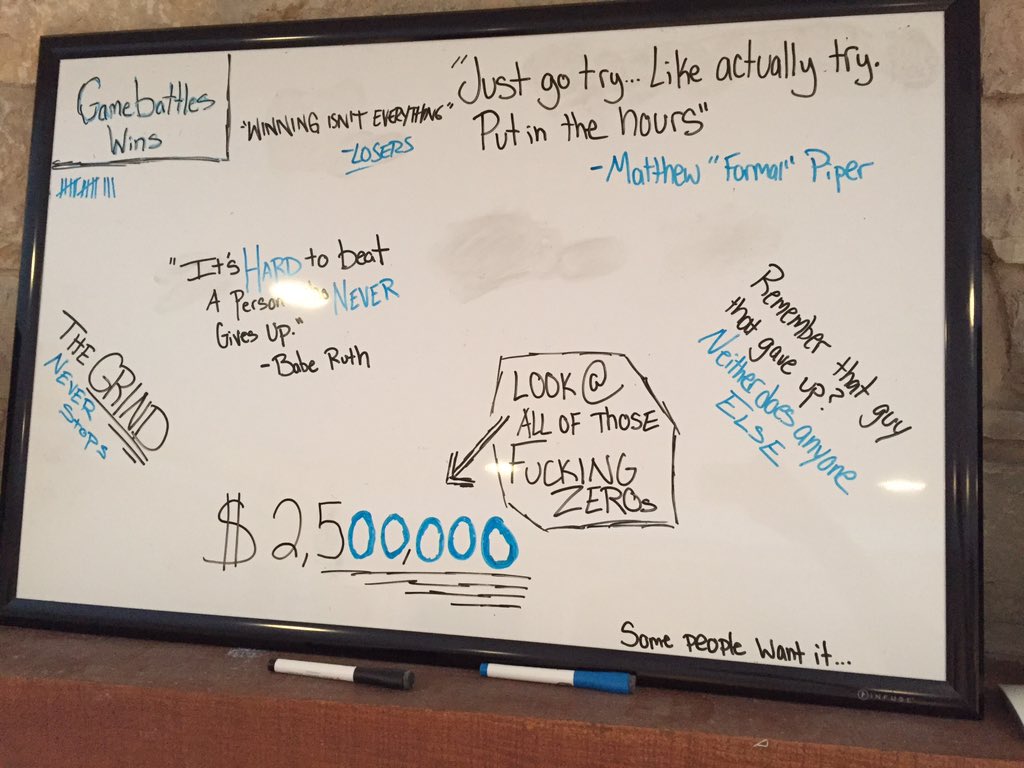 Gamebattles
Wins
"WINNING ISN'T EVERYTHING"
-LOSERS
"Just go try... Like actually try.
Put in the hours"
-Matthew "Formal" Piper
"It's HARD to beat
A Person NEVER
Gives Up."
-Babe Ruth
THE GRIND
NEVER
Stops
Remember that guy
that gave up?
Neither does anyone
ELSE
LOOK @
ALL OF THOSE
FUCKING
ZEROs
$2,500,000
Some people Want it...
INFUSE